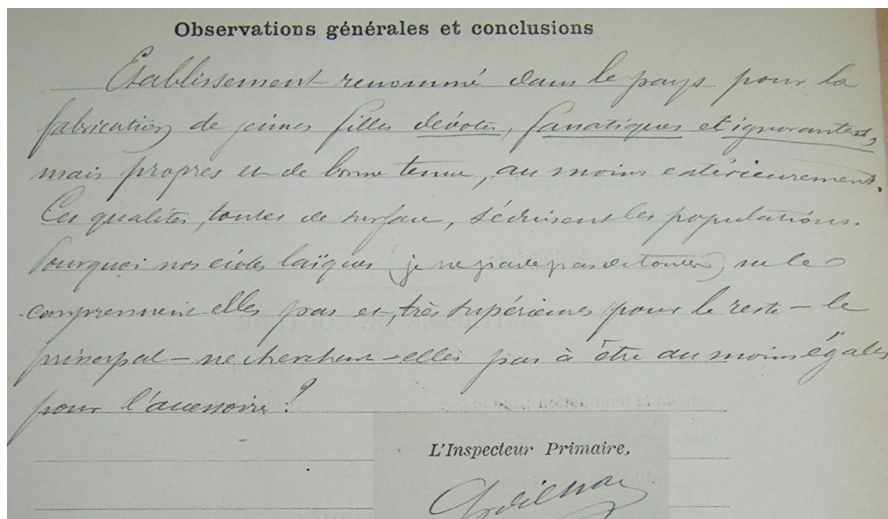 Observations générales et conclusions
Etablissement renommé dans le pays pour la
fabrication de jeunes filles dévotes, fanatiques et ignorantes,
mais propres et de bonne tenue, au moins extérieurement.
Ces qualités, toutes de surface, séduisent les populations.
Pourquoi nos écoles laïques (je ne parle pas de toutes) ne le
comprennent-elles pas et, très supérieures pour le reste - le
principal - ne cherchent-elles pas à être au moins égales
pour l'accessoire ?
L'Inspecteur Primaire,